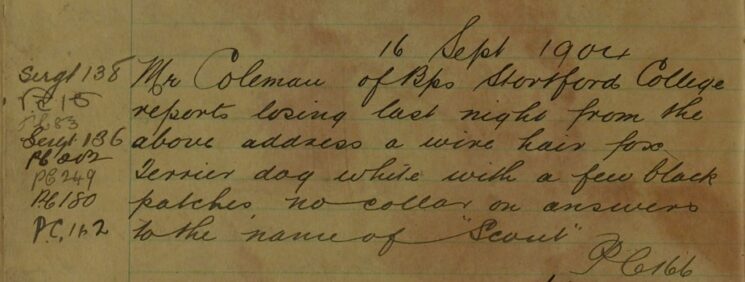 16 Sept 1904
Sergt 138 Mr Coleman of Bps Stortford College
P.C 15 reports losing last night from the
PC 83
Sergt 136 above address a wire hair fox
PC 202
PC 249 Terrier dog white with a few black
PC 180 patches no collar on answers
P.C. 162 to the name of "Scout"
PC 166